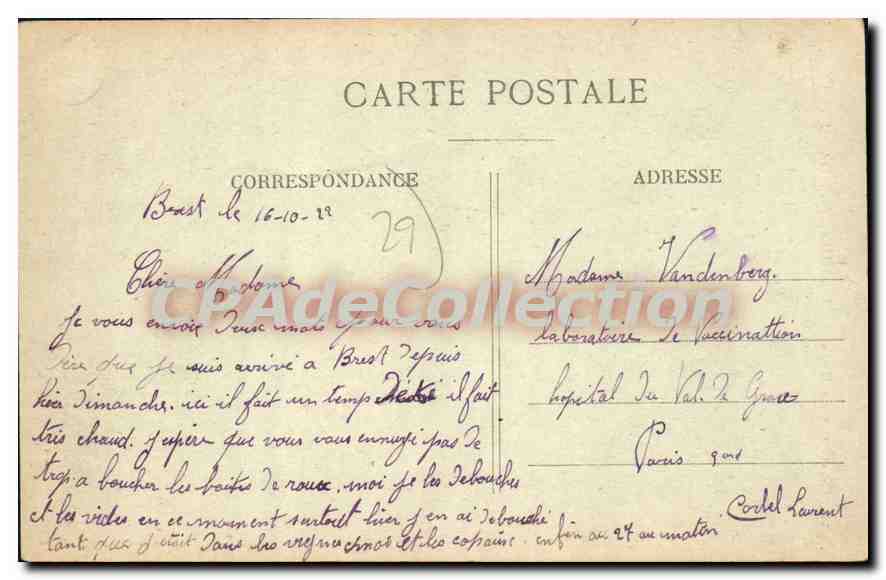 CARTE POSTALE
CORRESPONDANCE
ADRESSE
Brest le 16-10-22
29
Chère Madame
Je vous envoie deux mots pour vous
dire que je suis arrivé a Brest depuis
hier dimanche. ici il fait un temps d'été il fait
très chaud. J'espère que vous vous ennuyé pas de
trop a boucher les boites de roux. moi je les debouches
et les vides en ce moment surtout hier j'en ai debouché
tant que j'était dans les et les copains. enfin au 27 au matin
Madame Vandenberg.
laboratoire de Vaccinattion
hopital du Val. de Grace
Paris
Cordel Laurent
CPAdeCollection